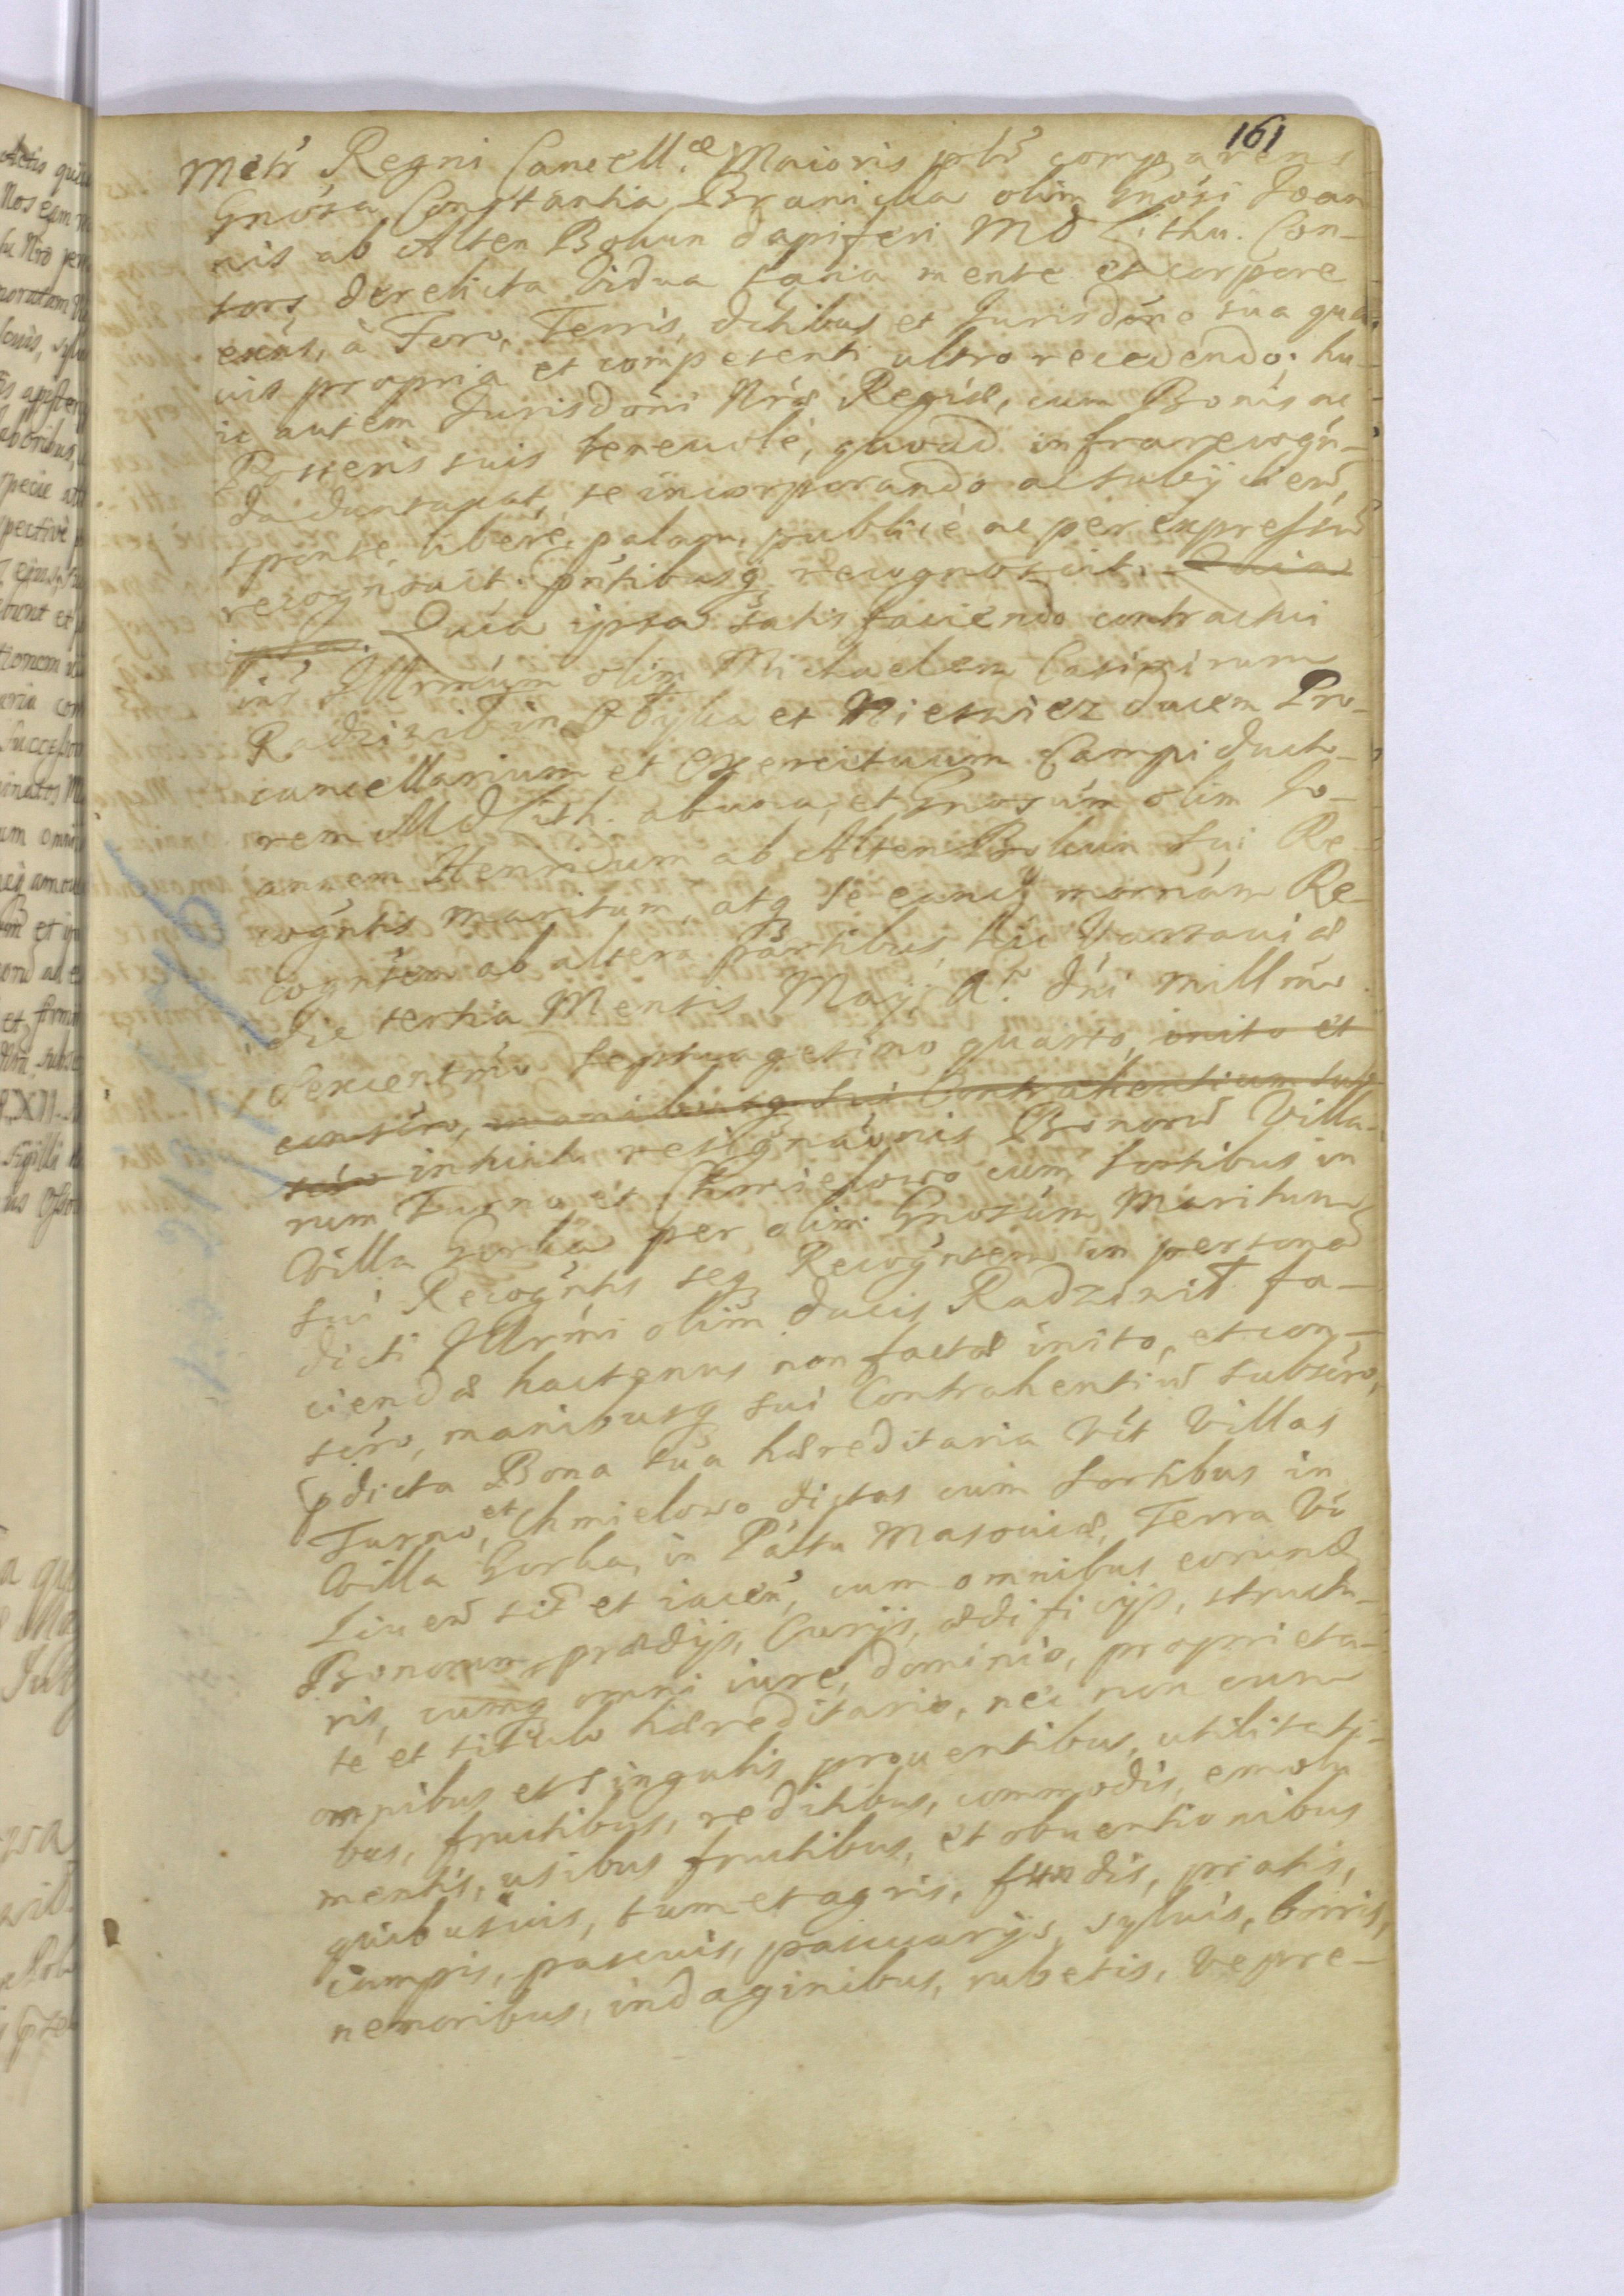 161
Metr Regni Cancell.æ Maioris plr comparens
Gnosa Constantia Branicka olim Gnosi Joan
nis ab Alten Bokun Dapiferi MD Lithu. Con-
sors derelicta Vidua sana mente et corpore
exñs, à Foro, Terris, dctibus et Jurisdõne sua qua-
uis propria et competenti ultro recedendo, hu-
ic autem Jurisdõni Nræ Regiæ, cum Bonis ac
Possens suis genrlr, quoad infrarecogñ-
da duntaxat, se incorporando ac subijciend,
sponte, libere, palam, publicè ac per expressũ
recognouit. Pñtibusq recognoscit. Quia
ipsa. Quia ipsa satisfaciendo contractui
int Illrmum olim Michaelem Casimirum
Radziwił in Ołyka et Nieswiez Ducem Pro-
cancellarium et Exercituum Campi ducto-
rem MD Lith. ab una, et Gnosum olim Jo-
annem Henricum ab Alten Bokun sui Re-
cogñtis maritum, atq se eand mõrnam Re-
cogñtem ab altera partibus, hic Varsauiæ
die tertia Mensis Maij, Aº Dñi Millmo
Sexcentmo septuagesimo quarto, inito et
consčro, manibusq sui Contrahentium sub
sčro intuitu resignãonis Bonorũ Villa-
rum Turno et Chmielowo cum sortibus in
Villa Gorka per olim Gnosum Maritum
sui Recogñtis seq Recogñtem in personã
dicti Illrmi olim Ducis Radziwił fa-
ciendæ hactenus non factæ inito, et con-
sčro, manibusq sui Contrahentiũ subsčro,
pdicta Bona sua hæreditaria Včt Villas
Turno, et Chmielowo dictas cum sortibus in
Villa Gorka, in Pałtu Masouiæ, Terra Vō
Liuen sit et iaceñ, cum omnibus eorund
Bonorum prædijs, Curijs, ædificijs, structu-
ris, cumq omni iure, dominio, proprieta-
te et titulo hæreditario, nec non cum
omnibus et singulis prouentibus, utilitati-
bus, fructibus, reditibus, commodis, emolu
mentis, usibus fructibus, et obuentionibus
quibusuis, tum et agris, fundis, pratis,
campis, pascuis, pascuarijs, syluis, borris,
nemoribus, indaginibus, rubetis, vepre-